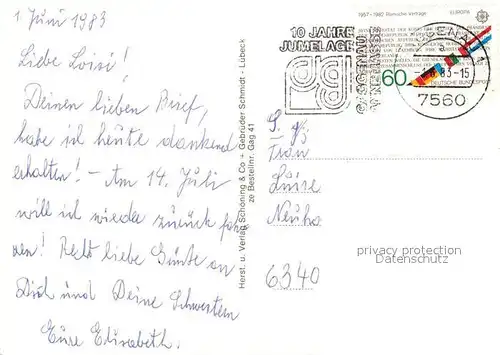 1 Juni 1983
Liebe Loise!
Deinen lieben Brief,
habe ich heute dankend
erhalten! - Am 14. Juli
will ich wieder zurück fah
ren! Recht liebe Grüße an
Dich und Deine Schwestern
Eure Elisabeth.
Herst. u. Verlag Schöning & Co + Gebrüder Schmidt - Lübeck
ze Bestellnr. Gag 41
10 JAHRE
JUMELAGE
GAGGENAU
ANNEMASSE
1957-1982 Römische Verträge EUROPA
60
DEUTSCHE BUNDESPOST
83-15
7560
Frau
Luise
Neuho
6340
privacy protection
Datenschutz